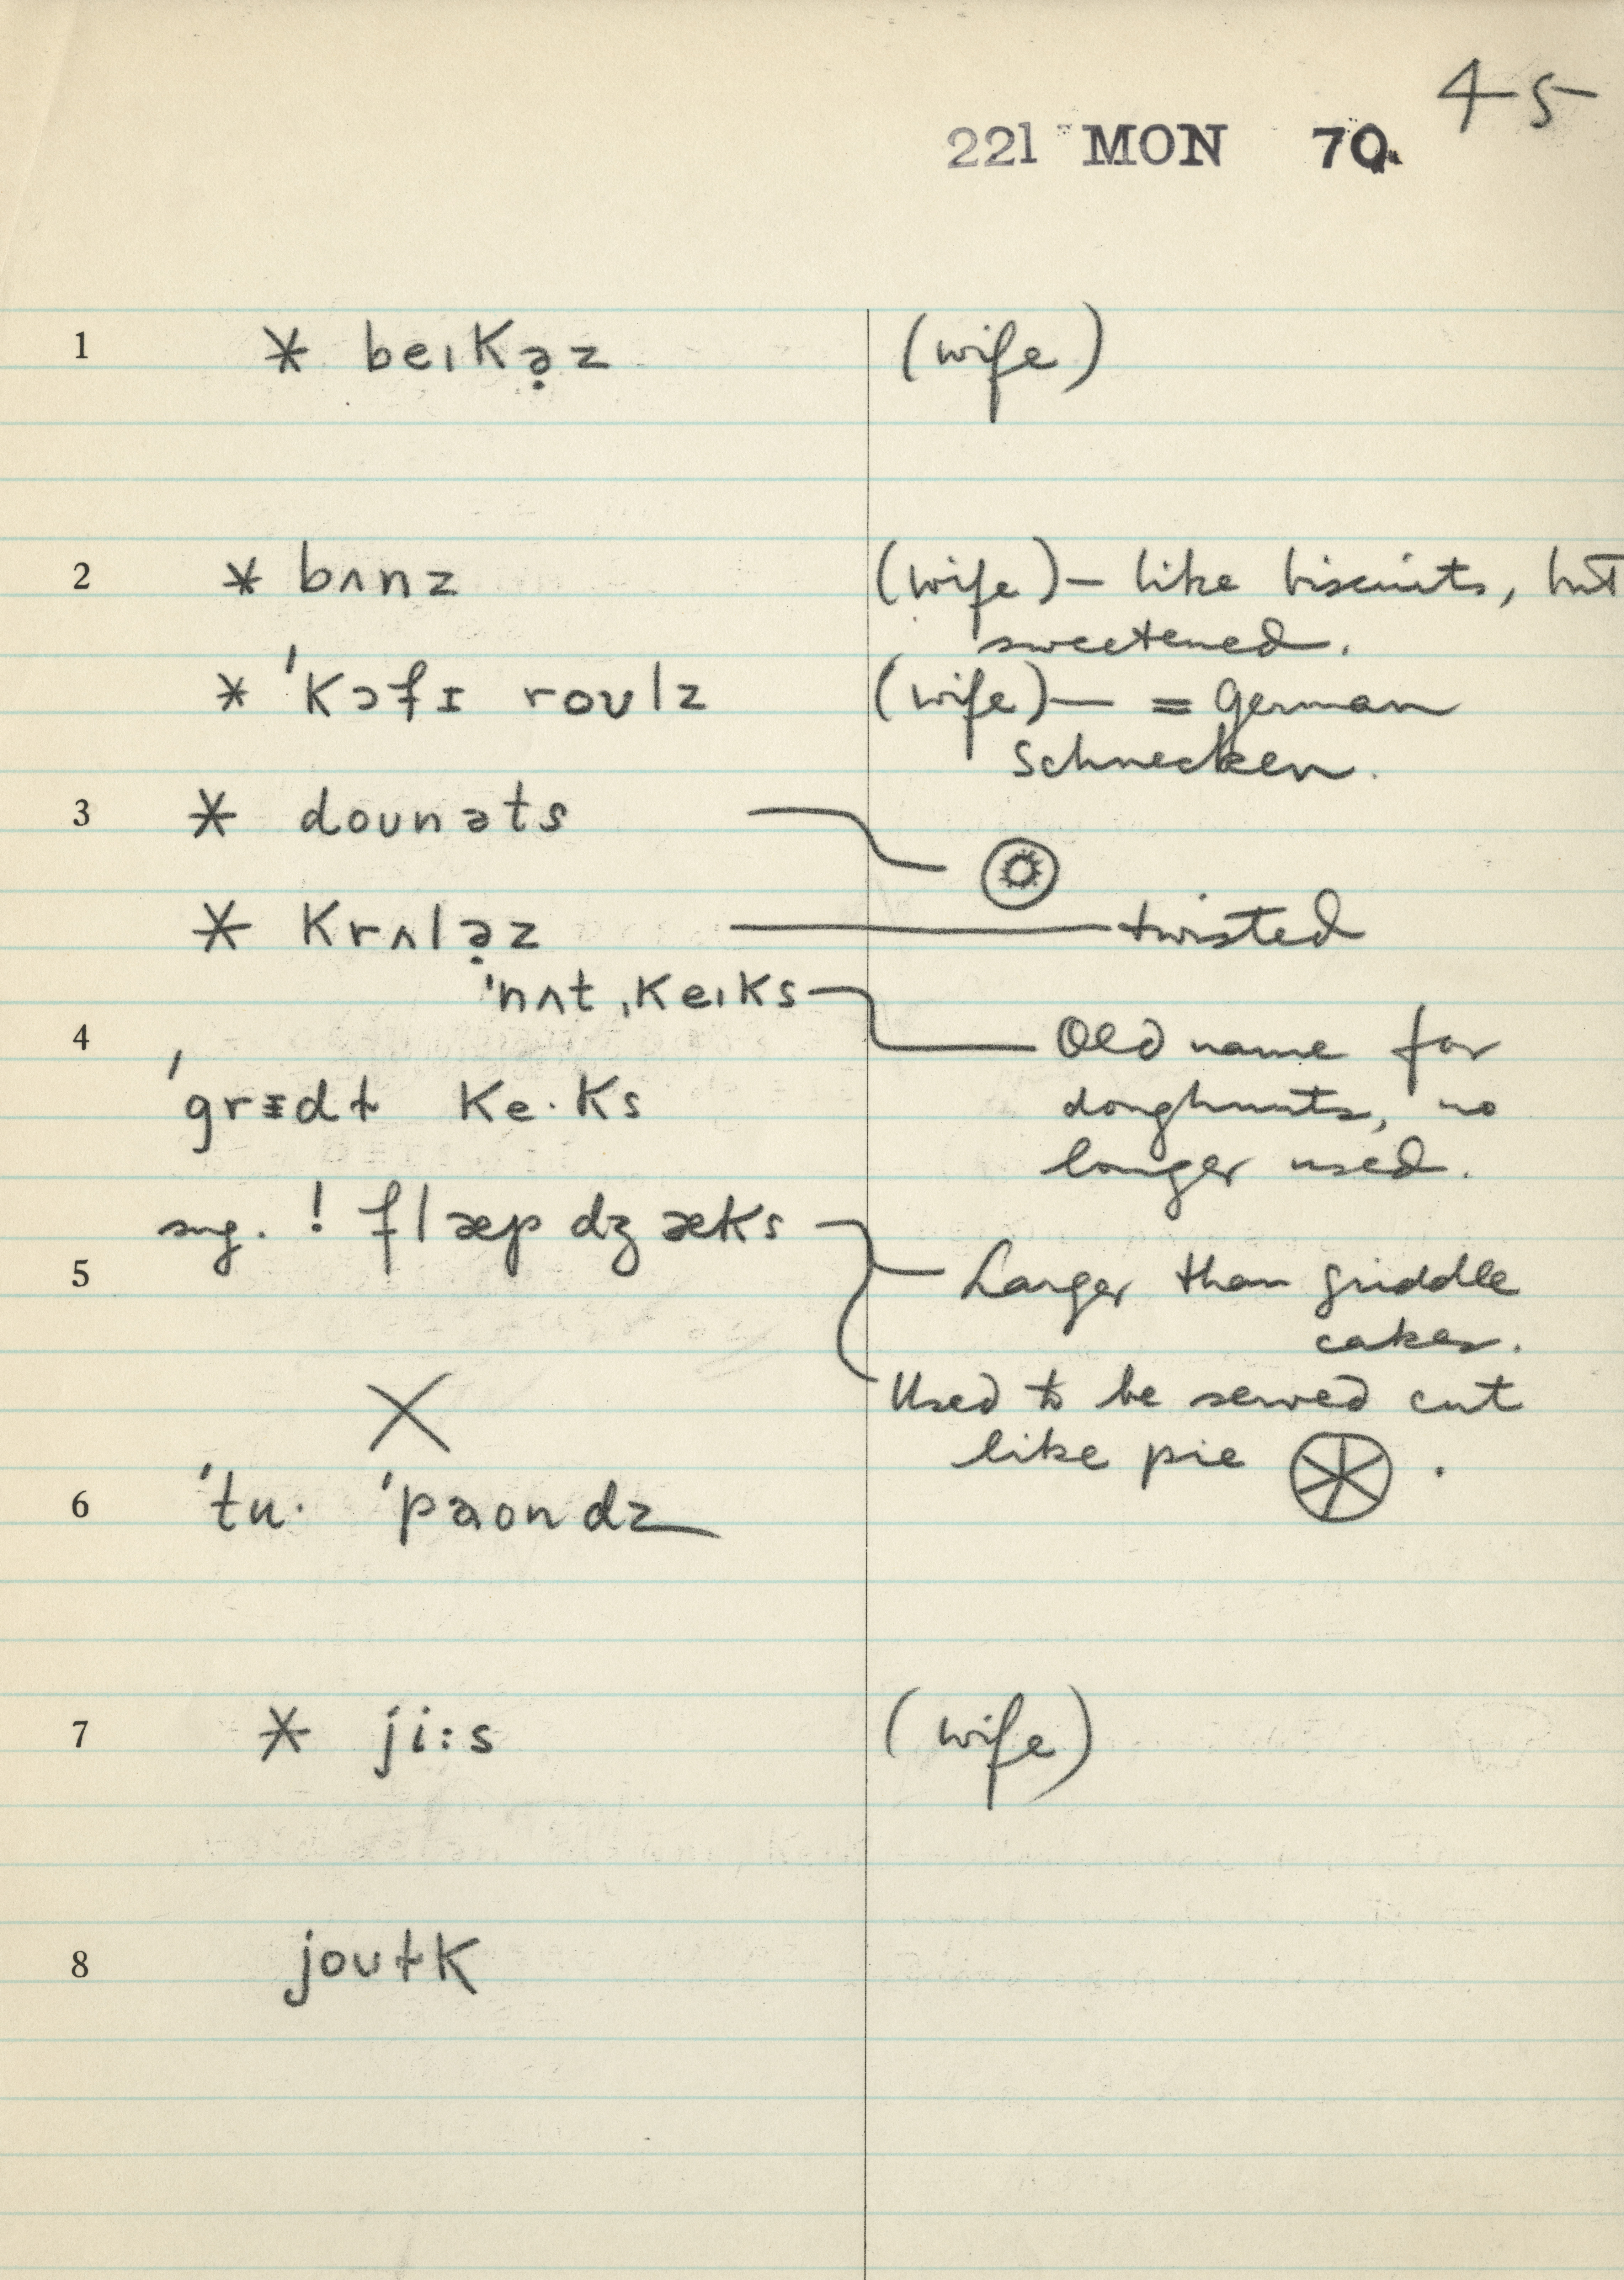 45
221 MON 70.
1 * beıKə̣z (wife)
2 * bʌnz (wife) — like biscuits, but
sweetened.
* 'Kɔfɪ roʊlz (wife) — = German
Schnecken.
3 * doʊnəts
* Krʌlə̣z twisted
'nʌt ˌKeıKs
4 Old name for
'grɪdɫ Ke·Ks doughnuts, no
longer used.
sug. ! flæp dʒæKs
5 Larger than griddle
cakes.
X Used to be served cut
like pie .
6 'tu· 'paondz
7 * ji:s (wife)
8 joʊɫK